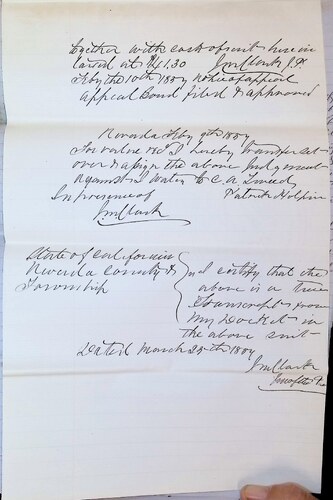 together with cost of suit herein
taxed at $41.30 J M Clark J.P.
Feby the 10th 1887 notice of appeal
appeal Bond filed & approved
Nevada Feby 9th 1887
For value Rec'd I hereby transfer set
over & assign the above Judgment
against to C. A. Tweed
In presence of Patrick
J M Clark
State of California
Nevada County &
Township
I certify that the
above is a true
Transcript from
my Docket in
the above suit
Dated March 25th
J M Clark
Justice of the Pe